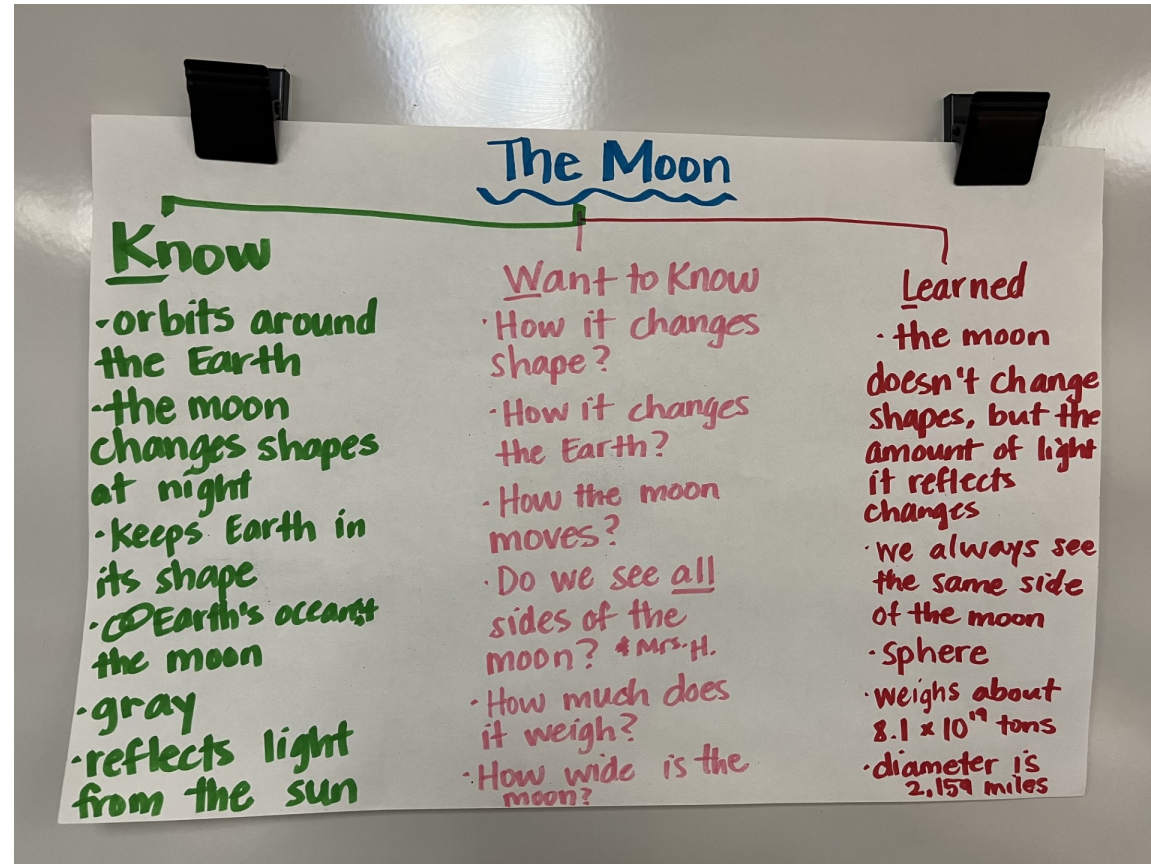 The Moon
Know
·orbits around
the Earth
·the moon
changes shapes
at night
·keeps Earth in
its shape
·Earth's oceans
the moon
·gray
·reflects light
from the sun
Want to Know
·How it changes
shape?
·How it changes
the Earth?
·How the moon
moves?
·Do we see all
sides of the
moon? *Mrs. H.
·How much does
it weigh?
·How wide is the
moon?
Learned
·the moon
doesn't change
shapes, but the
amount of light
it reflects
changes
·we always see
the same side
of the moon
·sphere
·weighs about
8.1 x 10¹⁹ tons
·diameter is
2,159 miles